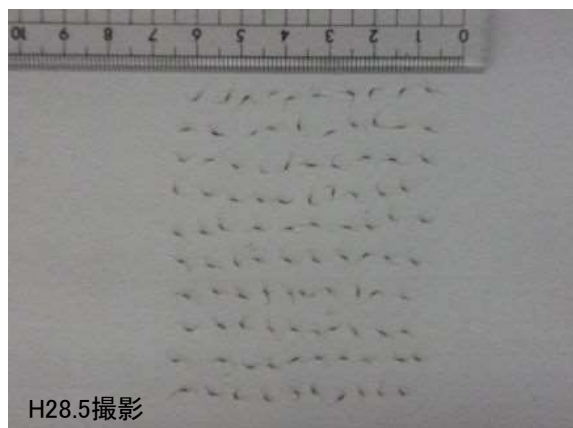 10 9 8 7 6 5 4 3 2 1 0
H28.5撮影